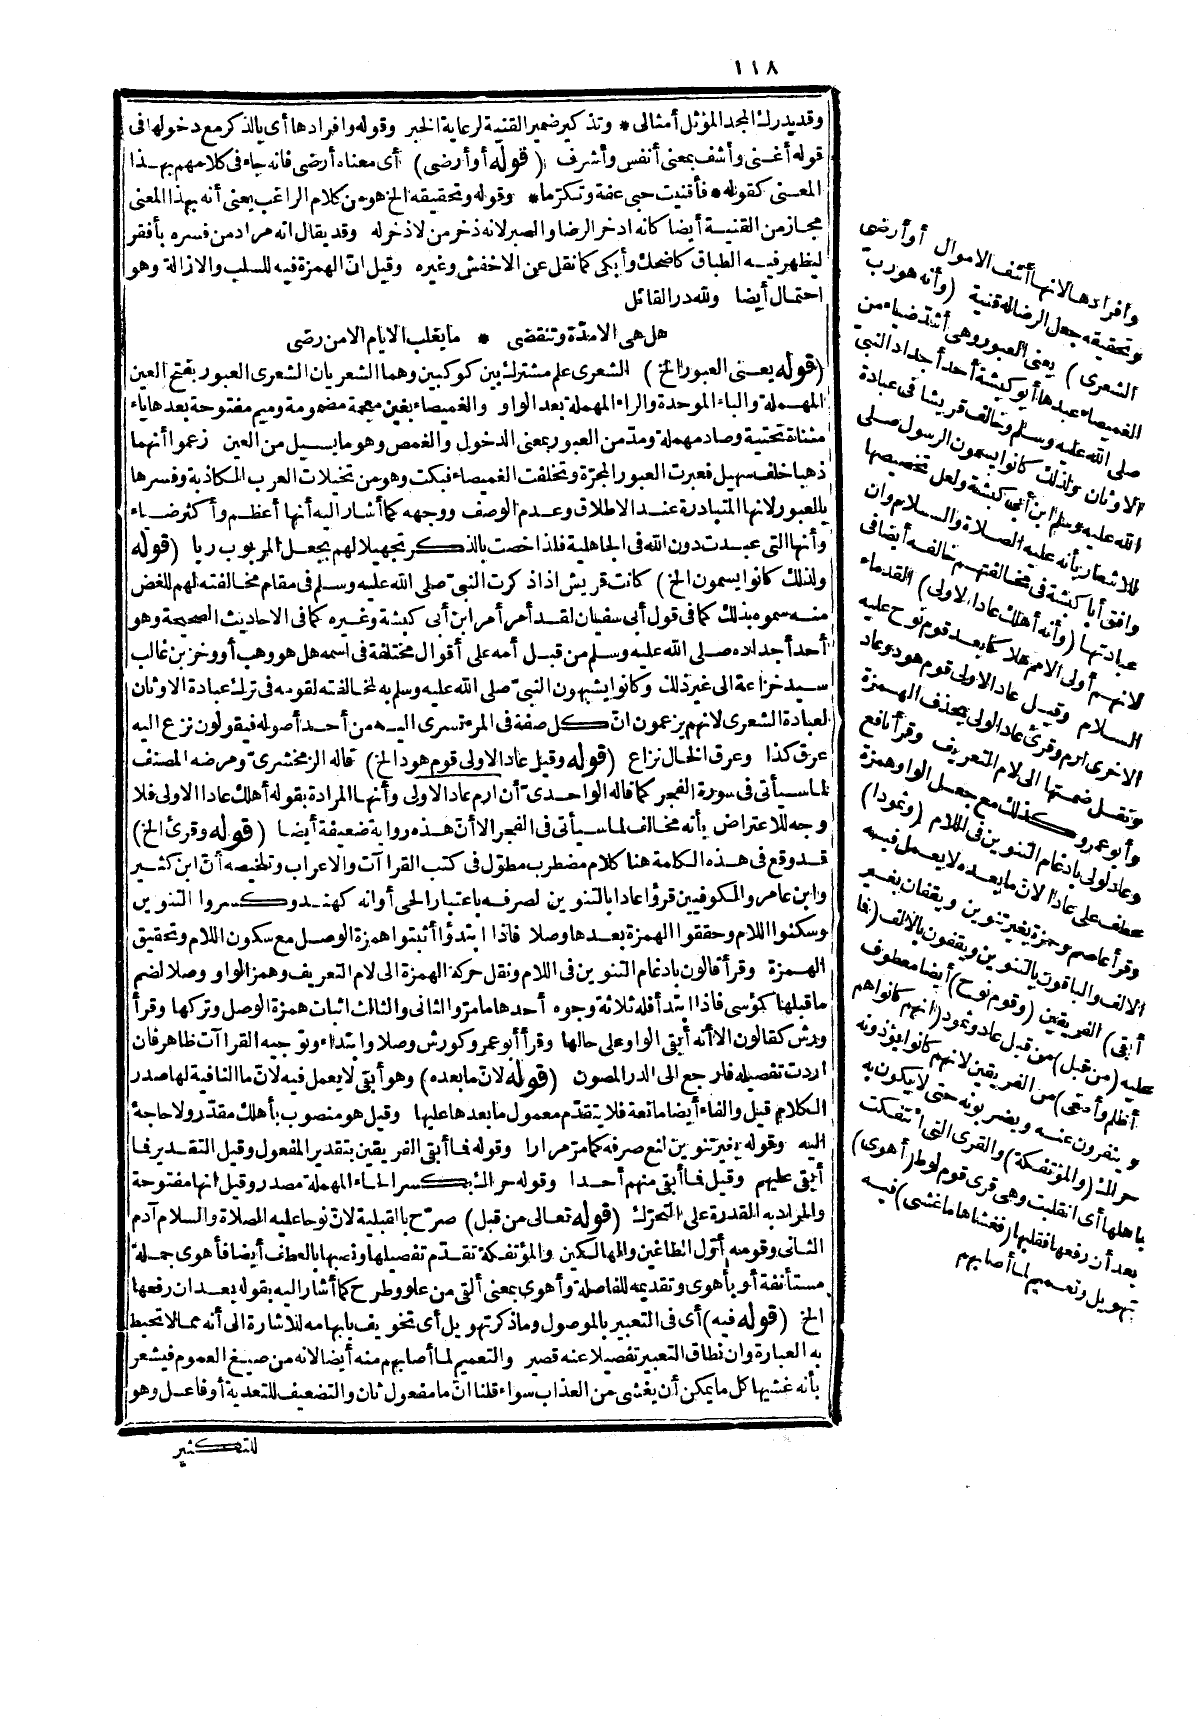 ١١٨
وقد يدرك المجد المؤثل أمثالى * وتذكير ضمير القنية لرعاية الخبر وقوله وافرادها أى بالذكر مع دخولها فى
قوله أغنى وأشف بمعنى أنفس وأشرف (قوله أو أرضى) أى معناه أرضى فانه جاء فى كلامهم بهذا
المعنى كقوله * فأقنيت حبى عفة وتكرما * وقوله وتحقيقه الخ هو من كلام الراغب يعنى أنه بهذا المعنى
مجاز من القنية أيضا كانه ادخر الرضا والصبر لانه ذخر من لا ذخر له وقد يقال انه مراد من فسره بأفقر
ليظهر فيه الطباق كاضحك وأبكى كما نقل عن الاخفش وغيره وقيل ان الهمزة فيه للسلب والازالة وهو
احتمال أيضا ولله در القائل
هل هى الا مدة وتنقضى * ما يغلب الايام الا من رضى
(قوله يعنى العبور الخ) الشعرى علم مشترك بين كوكبين وهما الشعريان الشعرى العبور بفتح العين
المهملة والباء الموحدة والراء المهملة بعد الواو والغميصاء بغين معجمة مضمومة وميم مفتوحة بعدها ياء
مثناة تحتية وصاد مهملة ومد من العبور بمعنى الدخول والغمص وهو ما يسيل من العين زعموا أنهما
ذهبا خلف سهيل فعبرت العبور المجرة وتخلفت الغميصاء فبكت وهو من تخيلات العرب الكاذبة وفسرها
بالعبور لانها المتبادرة عند الاطلاق وعدم الوصف ووجهه كما أشار اليه أنها أعظم وأكثر ضياء
وأنها التى عبدت دون الله فى الجاهلية فلذا خصت بالذكر تجهيلا لهم بجعل المربوب ربا (قوله
ولذلك كانوا يسمون الخ) كانت قريش اذا ذكرت النبى صلى الله عليه وسلم فى مقام مخالفته لهم للغض
منه سموه بذلك كما فى قول أبى سفيان لقد أمر أمر ابن أبى كبشة وغيره كما فى الاحاديث الصحيحة وهو
أحد أجداده صلى الله عليه وسلم من قبل أمه على أقوال مختلفة فى اسمه هل هو وهب أو وخز بن غالب
سيد خزاعة الى غير ذلك وكانوا يشبهون النبى صلى الله عليه وسلم به لمخالفته لقومه فى ترك عبادة الاوثان
لعبادة الشعرى لانهم يزعمون ان كل صفة فى المرء تسرى اليه من أحد أصوله فيقولون نزع اليه
عرق كذا وعرق الخال نزاع (قوله وقيل عاد الاولى قوم هود الخ) قاله الزمخشرى ومرضه المصنف
لما سيأتى فى سورة الفجر كما قاله الواحدى أن ارم عاد الاولى وأنها المرادة بقوله أهلك عادا الاولى فلا
وجه للاعتراض بأنه مخالف لما سيأتى فى الفجر الا أن هذه رواية ضعيفة أيضا (قوله وقرئ الخ)
قد وقع فى هذه الكلمة هنا كلام مضطرب مطول فى كتب القراآت والاعراب وتلخيصه أن ابن كثير
وابن عامر والكوفيين قرؤا عادا بالتنوين لصرفه باعتبار الحى أو انه كهند وكسروا التنوين
وسكنوا اللام وحققوا الهمزة بعدها وصلا فاذا ابتدؤا أثبتوا همزة الوصل مع سكون اللام وتحقيق
الهمزة وقرأ قالون بادغام التنوين فى اللام ونقل حركة الهمزة الى لام التعريف وهمز الواو وصلا لضم
ما قبلها كمؤسى فاذا ابتدأ فله ثلاثة وجوه أحدها ما مر والثانى والثالث اثبات همزة الوصل وتركها وقرأ
ورش كقالون الا أنه أبقى الواو على حالها وقرأ أبو عمرو كورش وصلا وابتداء وتوجيه القراآت ظاهر فان
اردت تفصيله فارجع الى الدر المصون (قوله لان ما بعده) وهو أبقى لا يعمل فيه لان ما النافية لها صدر
الكلام قيل والفاء أيضا مانعة فلا يتقدم معمول ما بعدها عليها وقيل هو منصوب بأهلك مقدر ولا حاجة
اليه وقوله بغير تنوين لمنع صرفه كما مر مرارا وقوله فما أبقى الفريقين بتقدير المفعول وقيل التقدير فما
أبقى عليهم وقيل فما أبقى منهم أحدا وقوله حراك بكسر الحاء المهملة مصدر وقيل انها مفتوحة
والمراد به القدرة على التحرك (قوله تعالى من قبل) صرح بالقبلية لان نوحا عليه الصلاة والسلام آدم
الثانى وقومه أول الطاغين والهالكين والمؤتفكة تقدم تفصيلها ونصبها بالعطف أيضا فأهوى جملة
مستأنفة أو بأهوى وتقديمه للفاصلة وأهوى بمعنى ألقى من علو وطرح كما أشار اليه بقوله بعد ان رفعها
الخ (قوله فيه) أى فى التعبير بالموصول وما ذكر تهويل أى تخويف بابهامه للاشارة الى أنه مما لا تحيط
به العبارة وان نطاق التعبير تفصيلا عنه قصير والتعميم لما أصابهم منه أيضا لانه من صيغ العموم فيشعر
بأنه غشيها كل ما يمكن أن يغشى من العذاب سواء قلنا ان ما مفعول ثان والتضعيف للتعدية أو فاعل وهو
للتكثير
وافرادها لانها أشف الاموال أو أرضى
وتحقيقه جعل الرضا له قنية (وأنه هو رب
الشعرى) يعنى العبور وهى أشد ضياء من
الغميصاء عبدها أبو كبشة أحد أجداد النبى
صلى الله عليه وسلم وخالف قريشا فى عبادة
الاوثان ولذلك كانوا يسمون الرسول صلى
الله عليه وسلم ابن أبى كبشة ولعل تخصيصها
للاشعار بأنه عليه الصلاة والسلام وان
وافق أبا كبشة فى مخالفتهم خالفه أيضا فى
عبادتها (وأنه أهلك عادا الاولى) القدماء
لانهم أولى الامم هلاكا بعد قوم نوح عليه
السلام وقيل عاد الاولى قوم هود وعاد
الاخرى ارم وقرئ عاد الولى بحذف الهمزة
ونقل ضمتها الى لام التعريف وقرأ نافع
وأبو عمرو كذلك مع جعل الواو همزة
وعاد لولى بادغام التنوين فى اللام (وثمودا)
عطف على عادا لان ما بعده لا يعمل فيه
وقرأ عاصم وحمزة بغير تنوين ويقفان بغير
الالف والباقون بالتنوين ويقفون بالالف (فما
أبقى) الفريقين (وقوم نوح) أيضا معطوف
عليه (من قبل) من قبل عاد وثمود (انهم كانوا هم
أظلم وأطغى) من الفريقين لانهم كانوا يؤذونه
وينفرون عنه ويضربونه حتى لا يكون به
حراك (والمؤتفكة) والقرى التى ائتفكت
باهلها أى انقلبت وهى قرى قوم لوط (أهوى)
بعد أن رفعها فقلبها (فغشاها ما غشى) فيه
تهويل وتعميم لما أصابهم